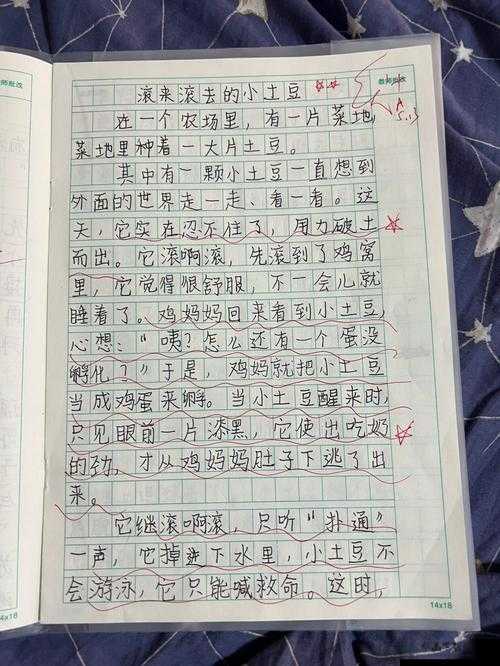 教师批改
滚来滚去的小土豆
在一个农场里,有一片菜地,
菜地里种着一大片土豆。
其中有一颗小土豆一直想到
外面的世界走一走、看一看。这
天,它实在忍不住了,用力破土
而出。它滚啊滚,先滚到了鸡窝
里,它觉得很舒服,不一会儿就
睡着了。鸡妈妈回来看到小土豆,
心想:“咦?怎么还有一个蛋没
孵化?”于是,鸡妈就把小土豆
当成鸡蛋来孵。当小土豆醒来时,
只见眼前一片漆黑,它使出吃奶
的劲,才从鸡妈妈肚子下逃了出
来。
它继滚啊滚,只听“扑通”
一声,它掉进下水里,小土豆不
会游泳,它只能喊救命。这时,
14x18